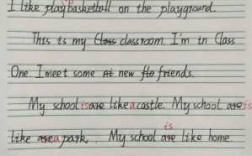 I like play basketball on the playground.
This is my Class classroom. I'm in Class
One. I meet some new friends.
is
My school is are like a castle. My school are is
like are a park. My school are like home